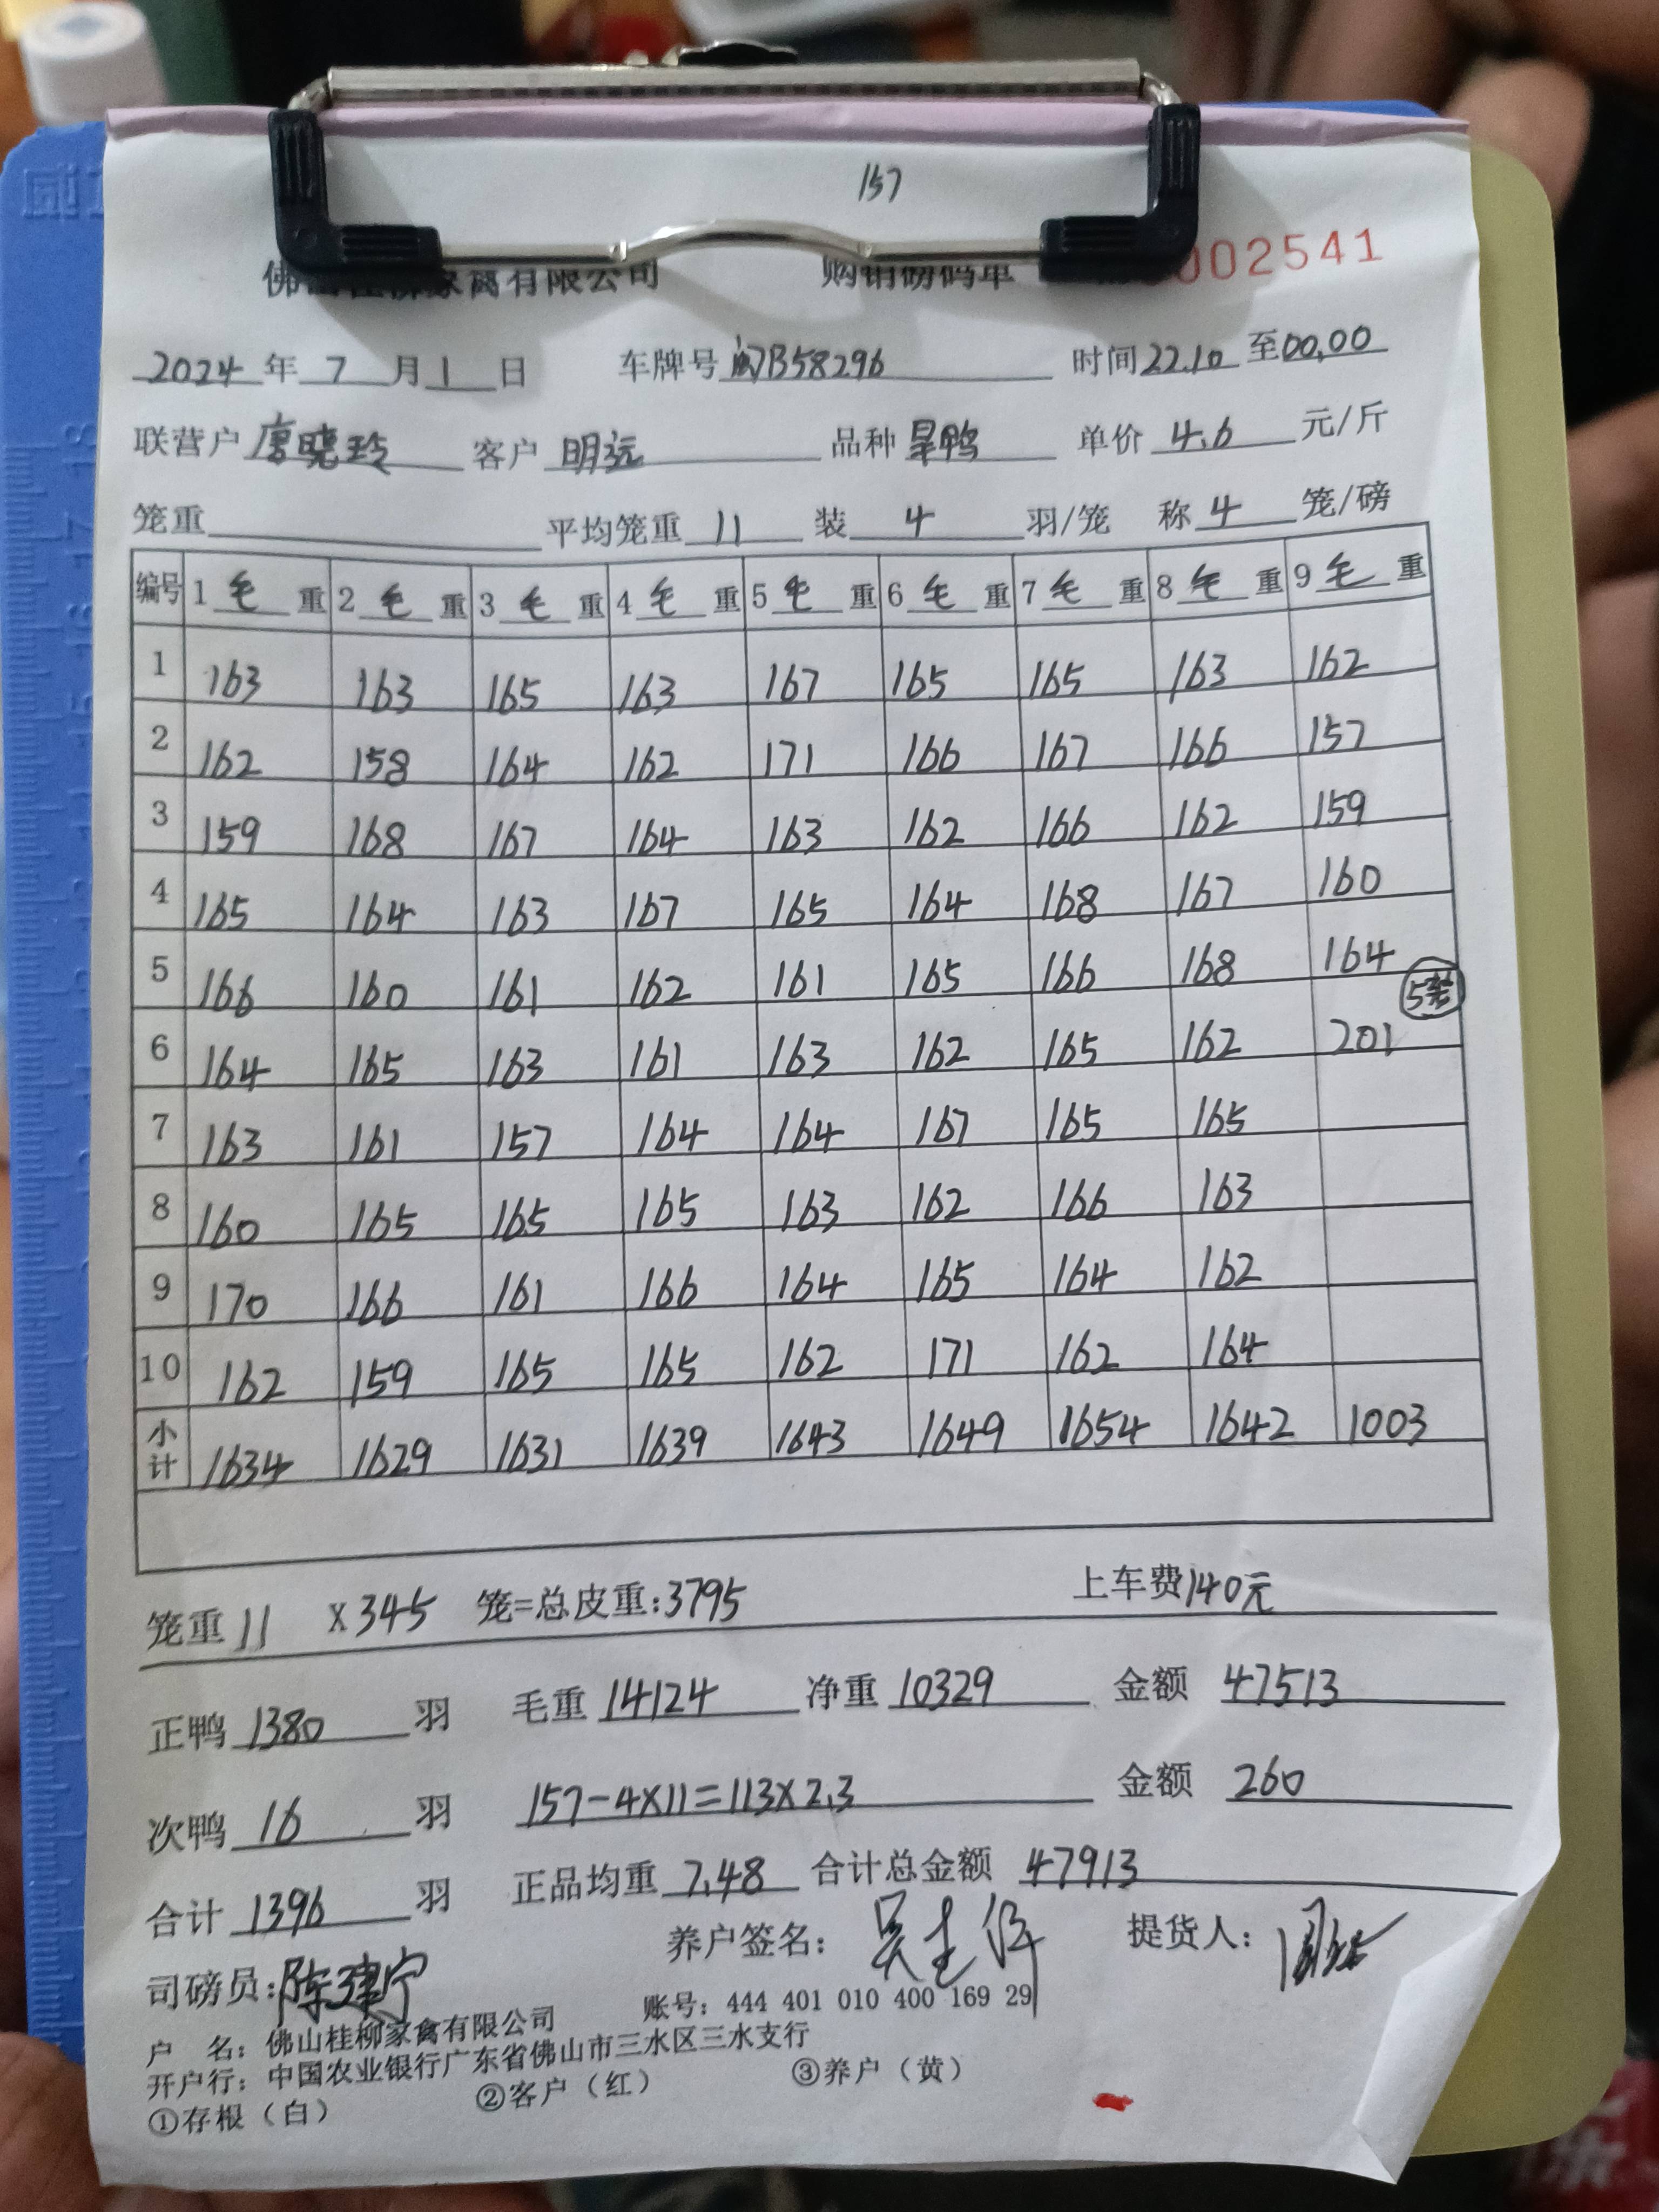 157
佛山桂柳家禽有限公司 购销磅码单 002541
2024年7月1日 车牌号 闽B58296 时间22.10至00.00
联营户 唐晓玲 客户 明远 品种 旱鸭 单价 4.6 元/斤
笼重 平均笼重 11 装 4 羽/笼 称 4 笼/磅
编号 1 毛 重 2 毛 重 3 毛 重 4 毛 重 5 毛 重 6 毛 重 7 毛 重 8 毛 重 9 毛 重
1 163 163 165 163 167 165 165 163 162
2 162 158 164 162 171 166 167 166 157
3 159 168 167 164 163 162 166 162 159
4 165 164 163 167 165 164 168 167 160
5 166 160 161 162 161 165 166 168 164
5笼
6 164 165 163 161 163 162 165 162 201
7 163 161 157 164 164 167 165 165
8 160 165 165 165 163 162 166 163
9 170 166 161 166 164 165 164 162
10 162 159 165 165 162 171 162 164
小计 1634 1629 1631 1639 1643 1649 1654 1642 1003
笼重 11 X 345 笼=总皮重:3795 上车费140元
正鸭 1380 羽 毛重 14124 净重 10329 金额 47513
次鸭 16 羽 157-4X11=113X2.3 金额 260
合计 1396 羽 正品均重 7.48 合计总金额 47913
养户签名: 提货人:
司磅员:陈建宁
户 名: 佛山桂柳家禽有限公司 账号: 444 401 010 400 169 29
开户行: 中国农业银行广东省佛山市三水区三水支行
①存根（白） ②客户（红） ③养户（黄）